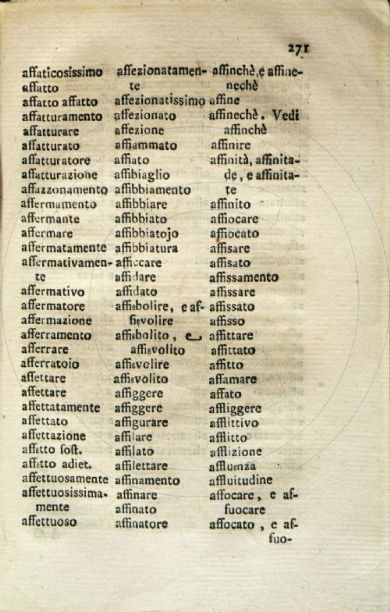 271
affaticosissimo
affatto
affatto affatto
affatturamento
affatturare
affatturato
affatturatore
affatturazione
affazzonamento
affermamento
affermante
affermare
affermatamente
affermativamen-
te
affermativo
affermatore
affermazione
afferramento
afferrare
afferratoio
affettare
affettare
affettatamente
affettato
affettazione
affetto sost.
affetto adiet.
affettuosamente
affettuosissima-
mente
affettuoso
affezionatamen-
te
affezionatissimo
affezionato
affezione
affiammato
affiato
affibbiaglio
affibbiamento
affibbiare
affibbiato
affibbiatojo
affibbiatura
afficcare
affidare
affidato
affiebolire, e af-
fievolire
affiebolito, e
affievolito
affievolire
affievolito
affiggere
affiggere
affigurare
affilare
affilato
affilettare
affinamento
affinare
affinato
affinatore
affinchè, e affine-
nechè
affine
affinechè. Vedi
affinchè
affinire
affinità, affinita-
de, e affinita-
te
affinito
affiocare
affiocato
affisare
affisato
affissamento
affissare
affissato
affisso
affittare
affittato
affitto
affamare
affato
affliggere
afflittivo
afflitto
afflizione
affluenza
affluitudine
affocare, e af-
fuocare
affocato, e af-
fuo-